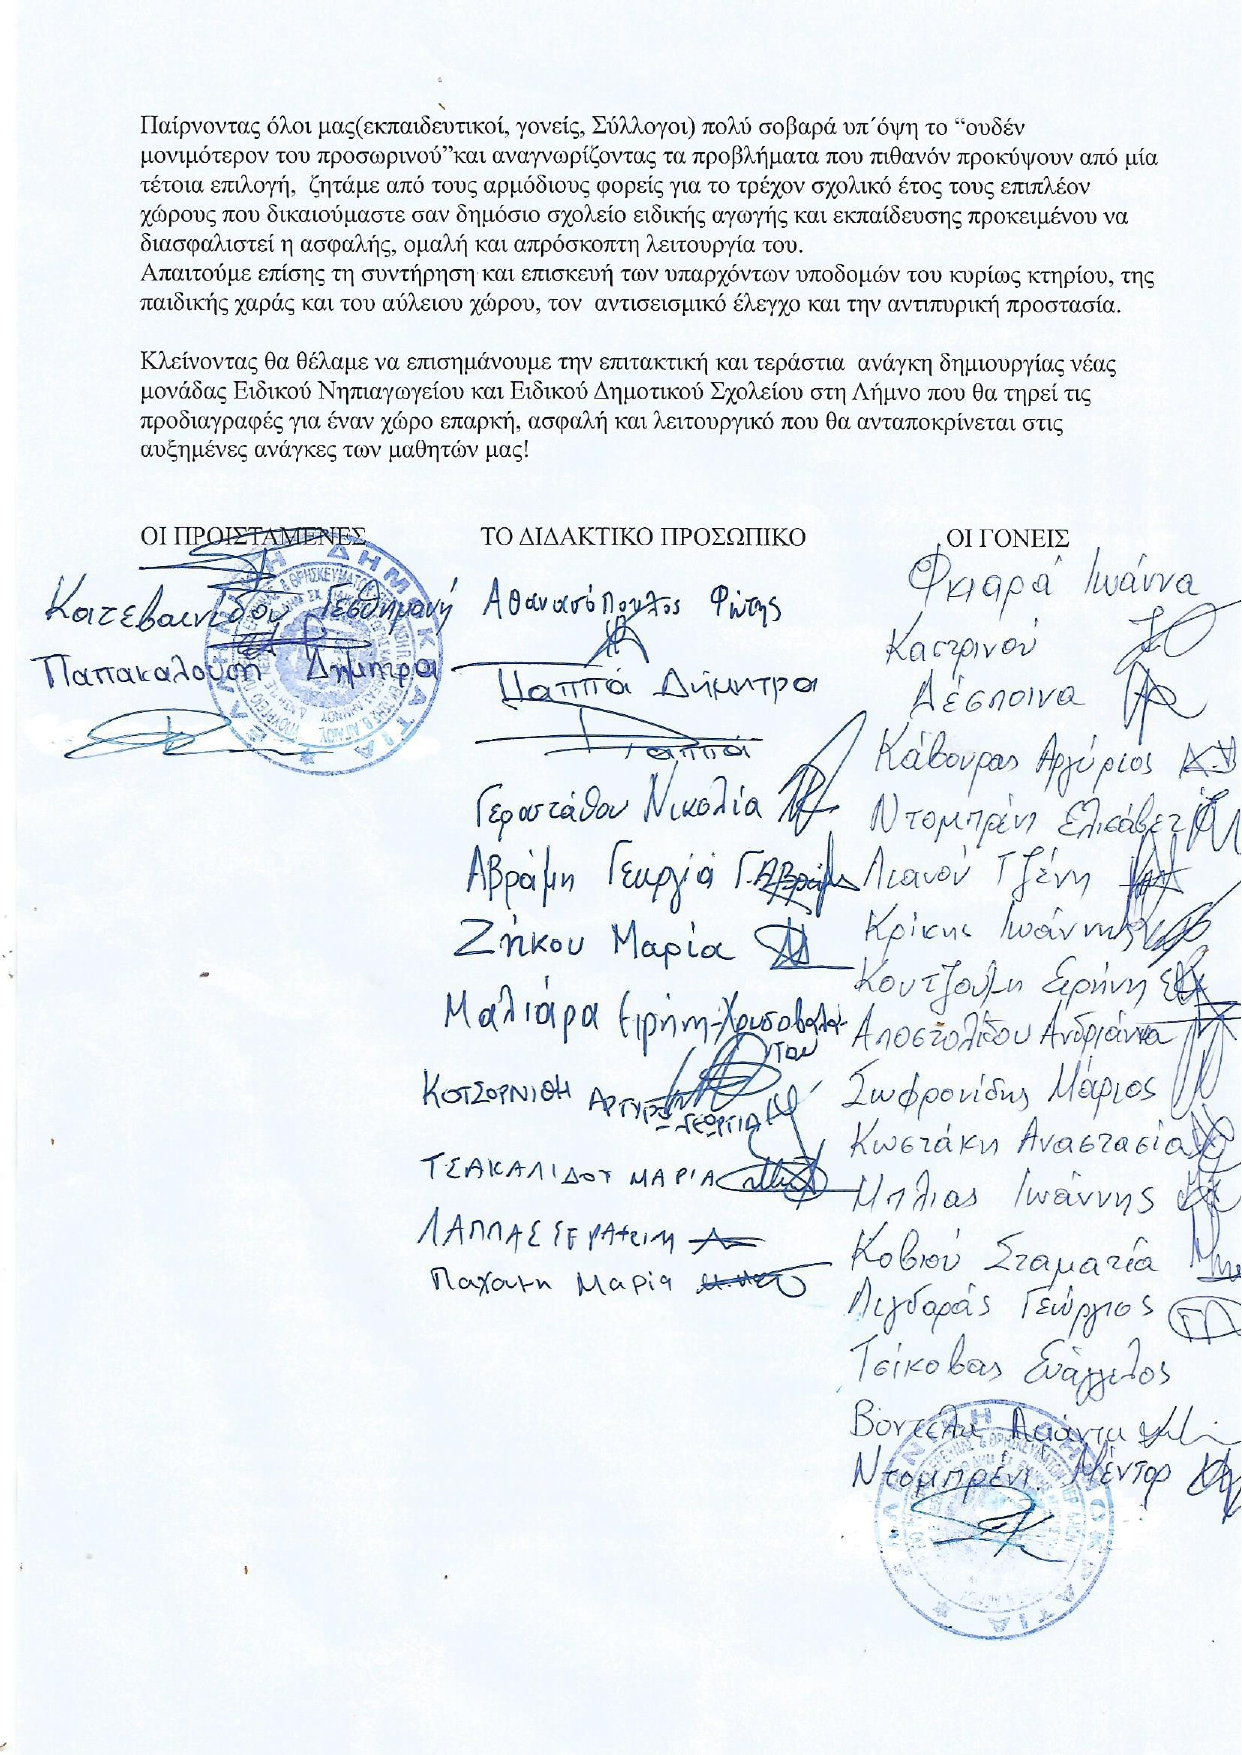 Παίρνοντας όλοι μας(εκπαιδευτικοί, γονείς, Σύλλογοι) πολύ σοβαρά υπ΄όψη το “ουδέν
μονιμότερον του προσωρινού”και αναγνωρίζοντας τα προβλήματα που πιθανόν προκύψουν από μία
τέτοια επιλογή, ζητάμε από τους αρμόδιους φορείς για το τρέχον σχολικό έτος τους επιπλέον
χώρους που δικαιούμαστε σαν δημόσιο σχολείο ειδικής αγωγής και εκπαίδευσης προκειμένου να
διασφαλιστεί η ασφαλής, ομαλή και απρόσκοπτη λειτουργία του.
Απαιτούμε επίσης τη συντήρηση και επισκευή των υπαρχόντων υποδομών του κυρίως κτηρίου, της
παιδικής χαράς και του αύλειου χώρου, τον αντισεισμικό έλεγχο και την αντιπυρική προστασία.
Κλείνοντας θα θέλαμε να επισημάνουμε την επιτακτική και τεράστια ανάγκη δημιουργίας νέας
μονάδας Ειδικού Νηπιαγωγείου και Ειδικού Δημοτικού Σχολείου στη Λήμνο που θα τηρεί τις
προδιαγραφές για έναν χώρο επαρκή, ασφαλή και λειτουργικό που θα ανταποκρίνεται στις
αυξημένες ανάγκες των μαθητών μας!
ΟΙ ΠΡΟΙΣΤΑΜΕΝΕΣ
Κατεβαινίδου Γεσθημανή
Παπακαλούση Δήμητρα
ΕΛΛΗΝΙΚΗ ΔΗΜΟΚΡΑΤΙΑ
ΤΟ ΔΙΔΑΚΤΙΚΟ ΠΡΟΣΩΠΙΚΟ
Αθανασόπουλος Φώτης
Παππά Δήμητρα
Παππά
Γεροστάθου Νικολία
Αβράμη Γεωργία Γ.Αβράμη
Ζήκου Μαρία
Μαλιάρα Ειρήνη-Χρυσοβαλά-
ντου
ΚΟΤΣΟΡΝΙΘΗ ΑΡΓΥΡΩ
-ΓΕΩΡΓΙΑ
ΤΣΑΚΑΛΙΔΟΥ ΜΑΡΙΑ
ΛΑΠΠΑΣ ΣΕΡΑΦΕΙΜ
Μαρία
ΟΙ ΓΟΝΕΙΣ
Ιωάννα
Καστρινού
Δέσποινα
Κάβουρας Αργύριος
Ντομπρένι Ελισάβετ
Λιανού Τζένη
Κρίκης Ιωάννης
Κουτζούμη Ειρήνη
Αποστολίδου Ανδριάννα
Σωφρονίδης Μάριος
Κωστάκη Αναστασία
Μπλιας Ιωάννης
Κοβιού Σταματία
Λιγδαράς Γεώργιος
Τσίκοβας Ευάγγελος
Ντομπρένι Μέντορ
ΕΛΛΗΝΙΚΗ ΔΗΜΟΚΡΑΤΙΑ